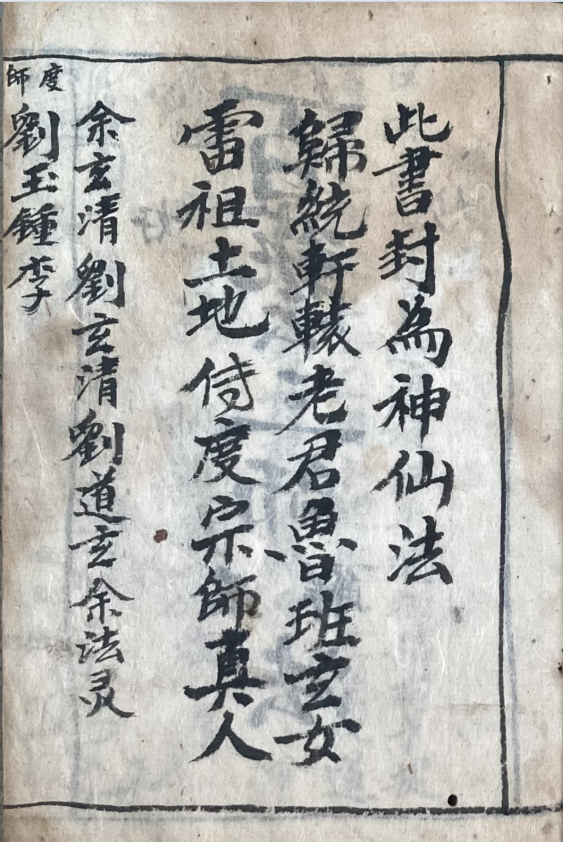 此書封為神仙法
歸統軒轅老君魯班玄女
雷祖土地侍度宗師真人
余玄清劉玄清劉道玄余法灵
度師
劉玉鍾李